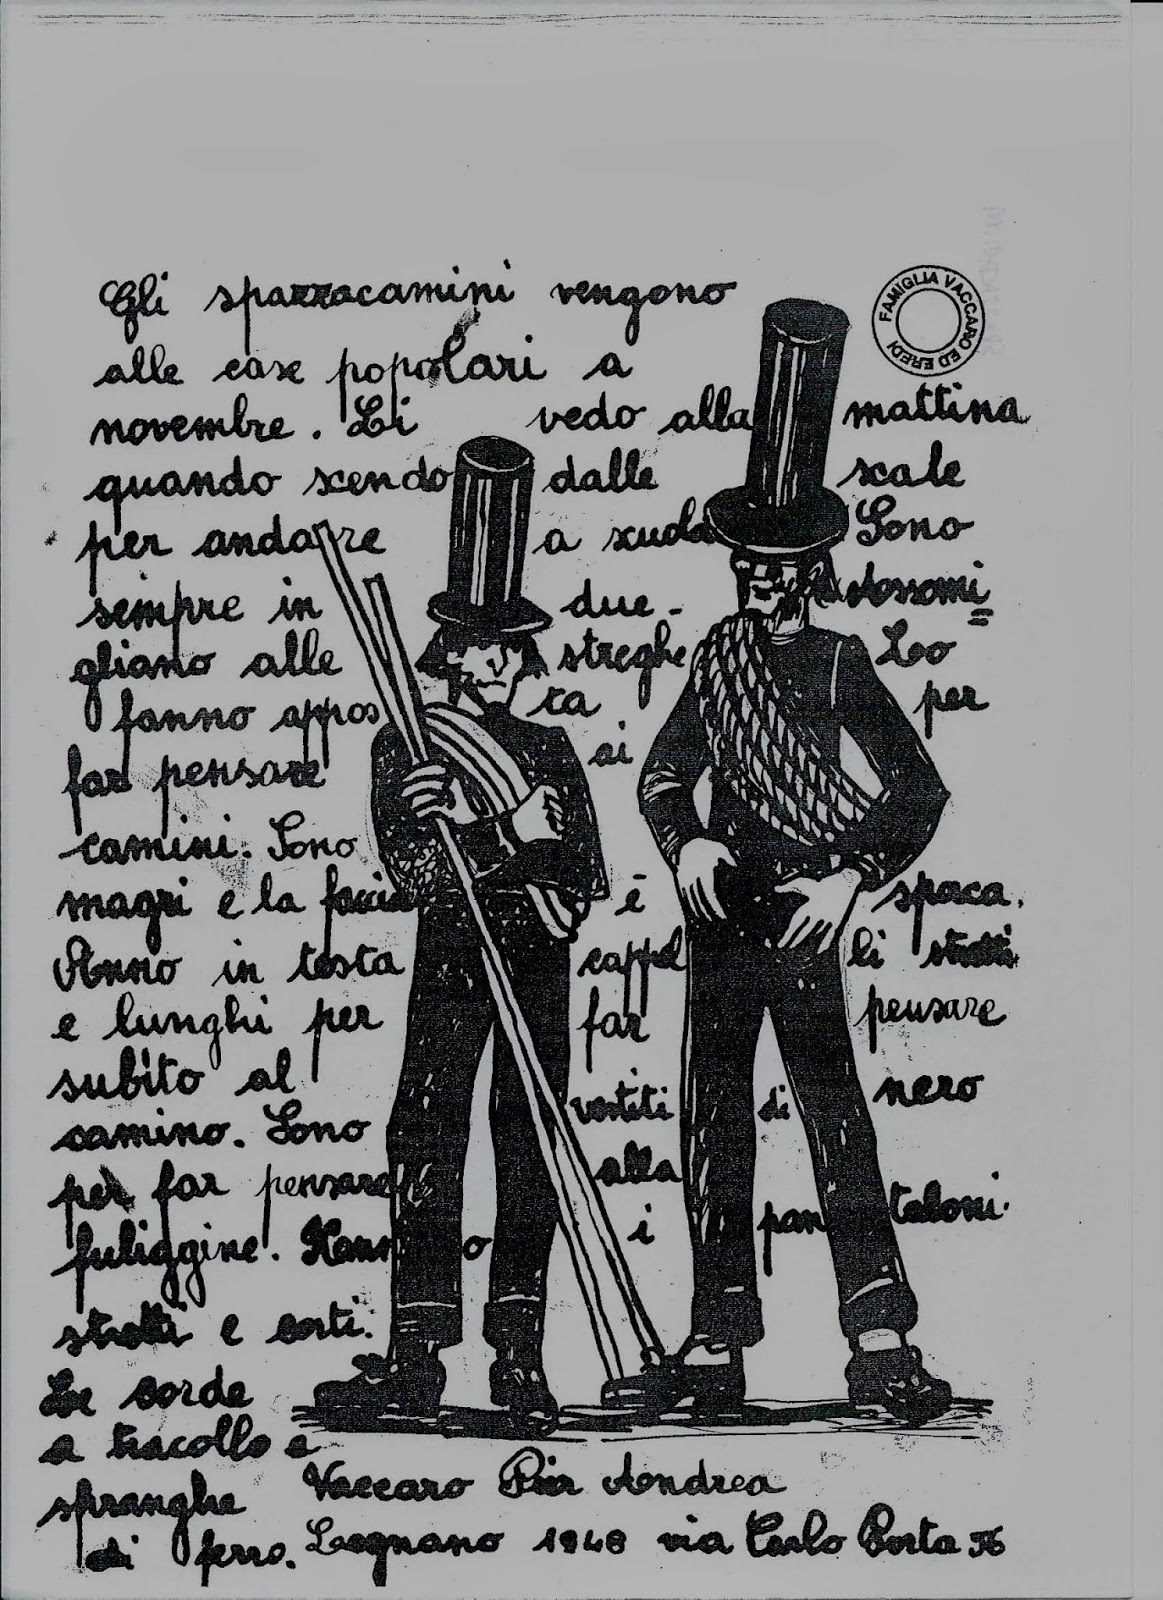 Gli spazzacamini vengono
alle case popolari a
novembre. Li vedo alla mattina
quando scendo dalle scale
per andare a scuola Sono
sempre in due. Assomi=
gliano alle streghe Lo
fanno apposta per
far pensare ai
camini. Sono
magri e la faccia è sporca.
Anno in testa cappelli stretti
e lunghi per far pensare
subito al
camino. Sono vestiti di nero
per far pensare alla
fuliggine. Hanno i pantaloni
stretti e corti.
Le corde
a tracollo e
spranghe
di ferro.
Vaccaro Pier Andrea
Legnano 1948 via Carlo Porta
FAMIGLIA VACCARO ED EREDI